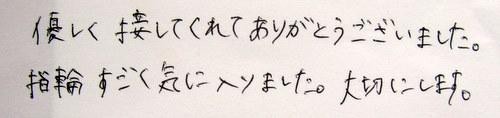 優しく接してくれてありがとうございました。
指輪すごく気に入りました。大切にします。